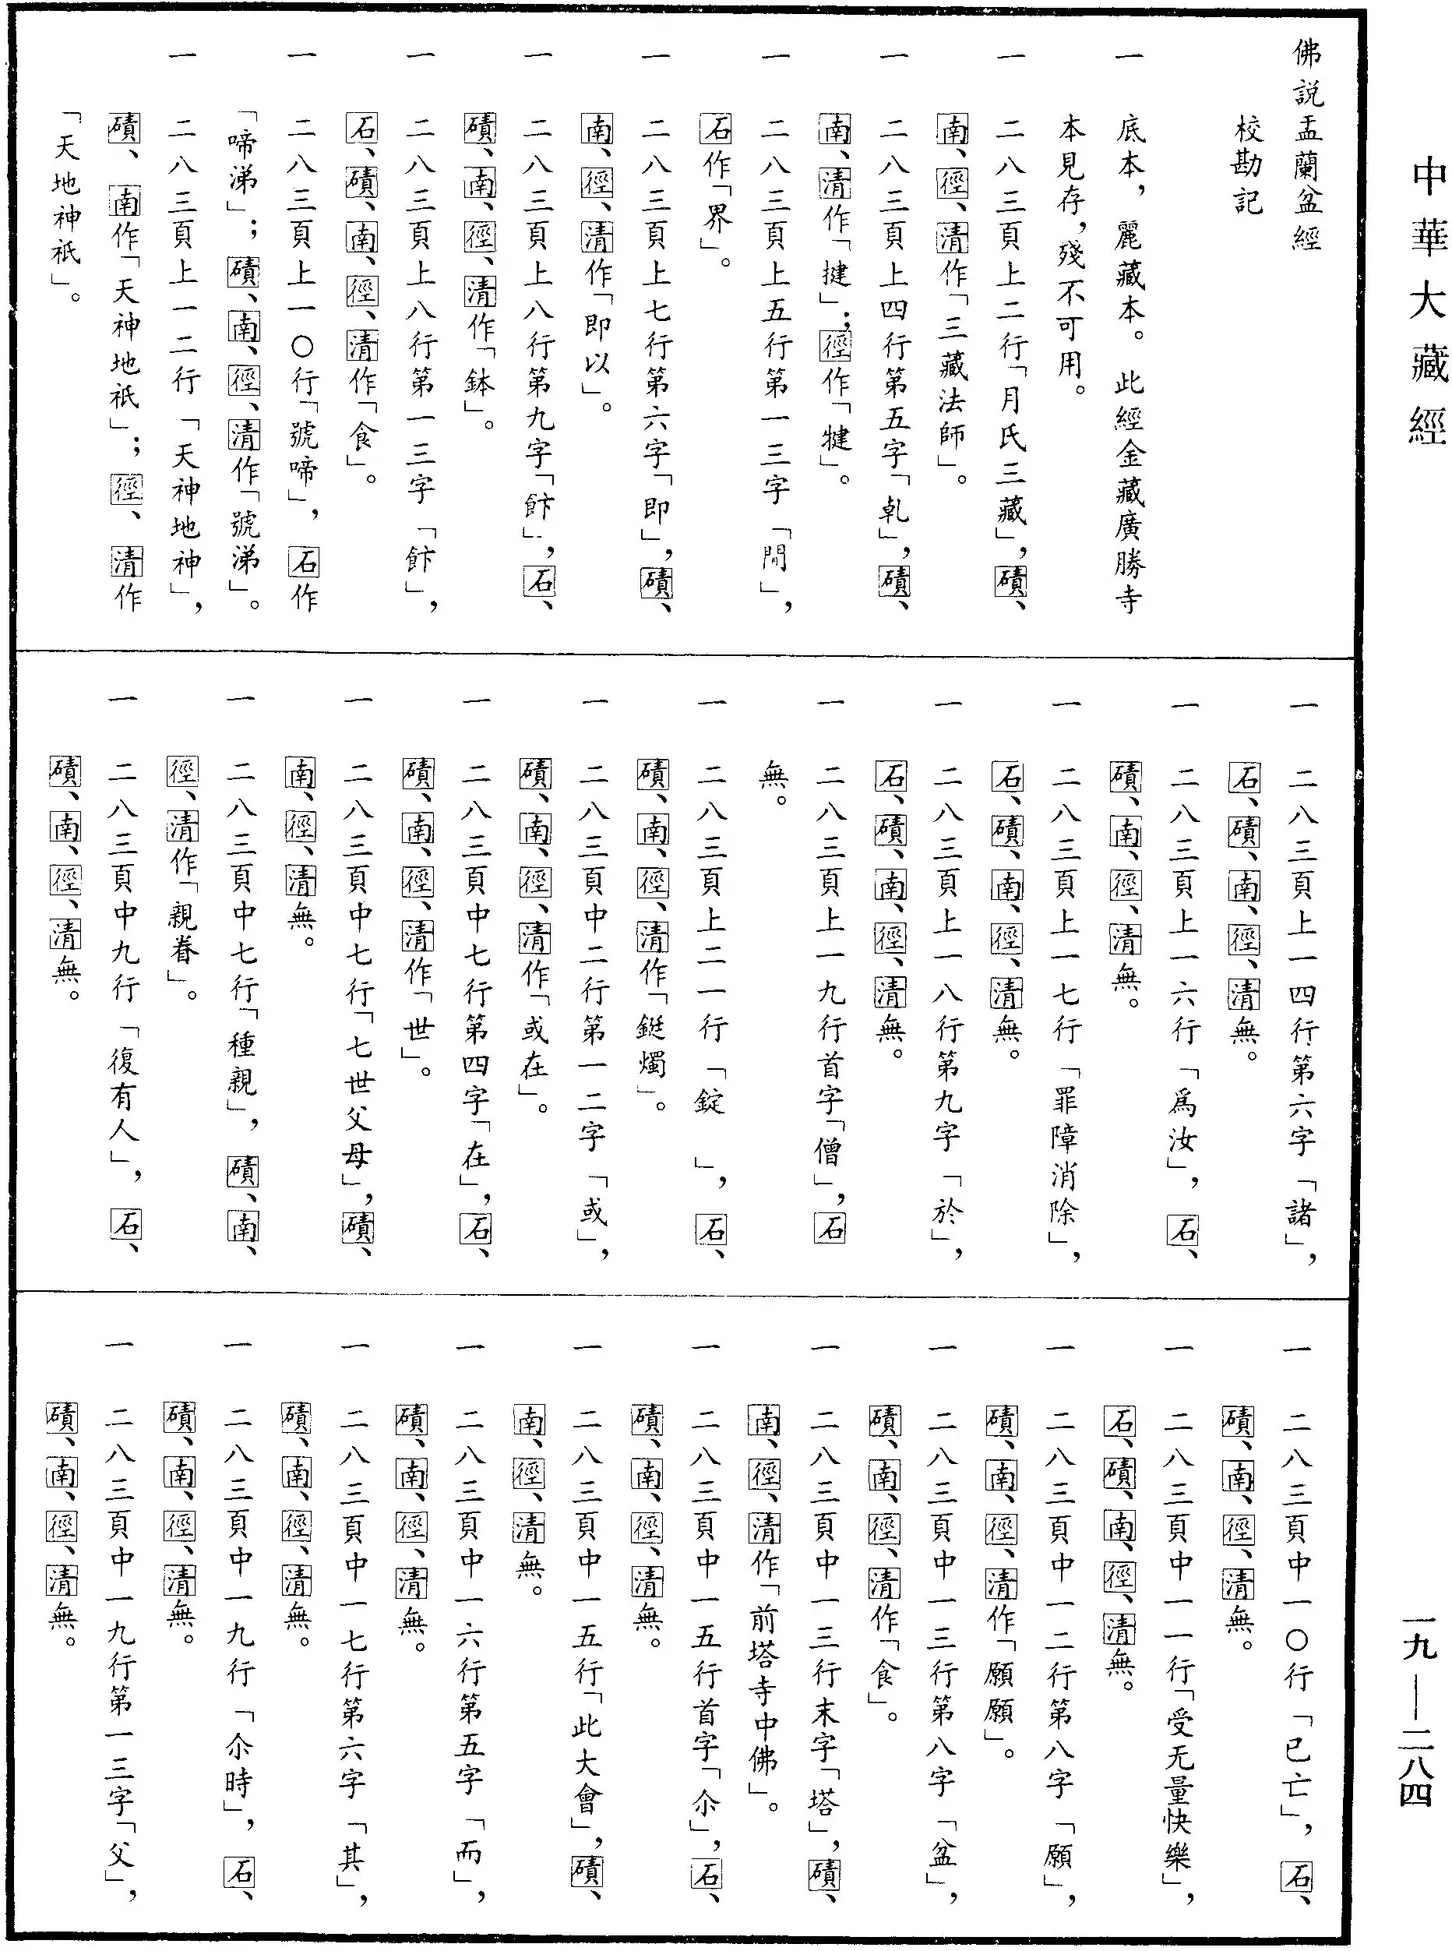 中華大藏經
佛説盂蘭盆經
校勘記
一　底本，麗藏本。此經金藏廣勝寺
本見存，殘不可用。
一　二八三頁上二行「月氏三藏」，磧、
南、徑、清作「三藏法師」。
一　二八三頁上四行第五字「乹」，磧、
南、清作「揵」；徑作「犍」。
一　二八三頁上五行第一三字「閒」，
石作「界」。
一　二八三頁上七行第六字「即」，磧、
南、徑、清作「即以」。
一　二八三頁上八行第九字「飰」，石、
磧、南、徑、清作「鉢」。
一　二八三頁上八行第一三字「飰」，
石、磧、南、徑、清作「食」。
一　二八三頁上一〇行「號啼」，石作
「啼涕」；磧、南、徑、清作「號涕」。
一　二八三頁上一二行「天神地神」，
磧、南作「天神地祇」；徑、清作
「天地神祇」。
一　二八三頁上一四行第六字「諸」，
石、磧、南、徑、清無。
一　二八三頁上一六行「爲汝」，石、
磧、南、徑、清無。
一　二八三頁上一七行「罪障消除」，
石、磧、南、徑、清無。
一　二八三頁上一八行第九字「於」，
石、磧、南、徑、清無。
一　二八三頁上一九行首字「僧」，石
無。
一　二八三頁上二一行「錠　」，石、
磧、南、徑、清作「鋌燭」。
一　二八三頁中二行第一二字「或」，
磧、南、徑、清作「或在」。
一　二八三頁中七行第四字「在」，石、
磧、南、徑、清作「世」。
一　二八三頁中七行「七世父母」，磧、
南、徑、清無。
一　二八三頁中七行「種親」，磧、南、
徑、清作「親眷」。
一　二八三頁中九行「復有人」，石、
磧、南、徑、清無。
一　二八三頁中一〇行「已亡」，石、
磧、南、徑、清無。
一　二八三頁中一一行「受无量快樂」，
石、磧、南、徑、清無。
一　二八三頁中一二行第八字「願」，
磧、南、徑、清作「願願」。
一　二八三頁中一三行第八字「盆」，
磧、南、徑、清作「食」。
一　二八三頁中一三行末字「塔」，磧、
南、徑、清作「前塔寺中佛」。
一　二八三頁中一五行首字「尒」，石、
磧、南、徑、清無。
一　二八三頁中一五行「此大會」，磧、
南、徑、清無。
一　二八三頁中一六行第五字「而」，
磧、南、徑、清無。
一　二八三頁中一七行第六字「其」，
磧、南、徑、清無。
一　二八三頁中一九行「尒時」，石、
磧、南、徑、清無。
一　二八三頁中一九行第一三字「父」，
磧、南、徑、清無。
一九——二八四